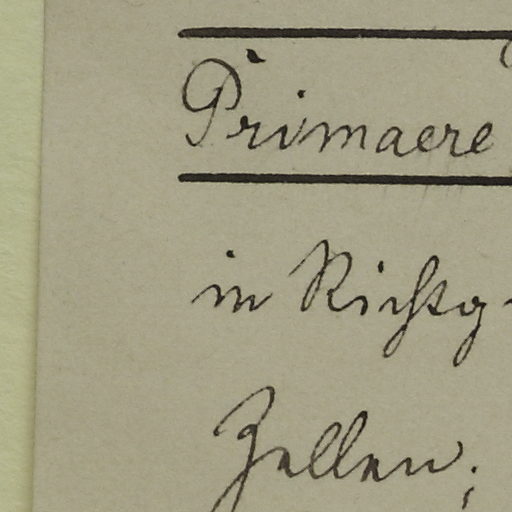 Primaere
in Richtg.
Zellen;